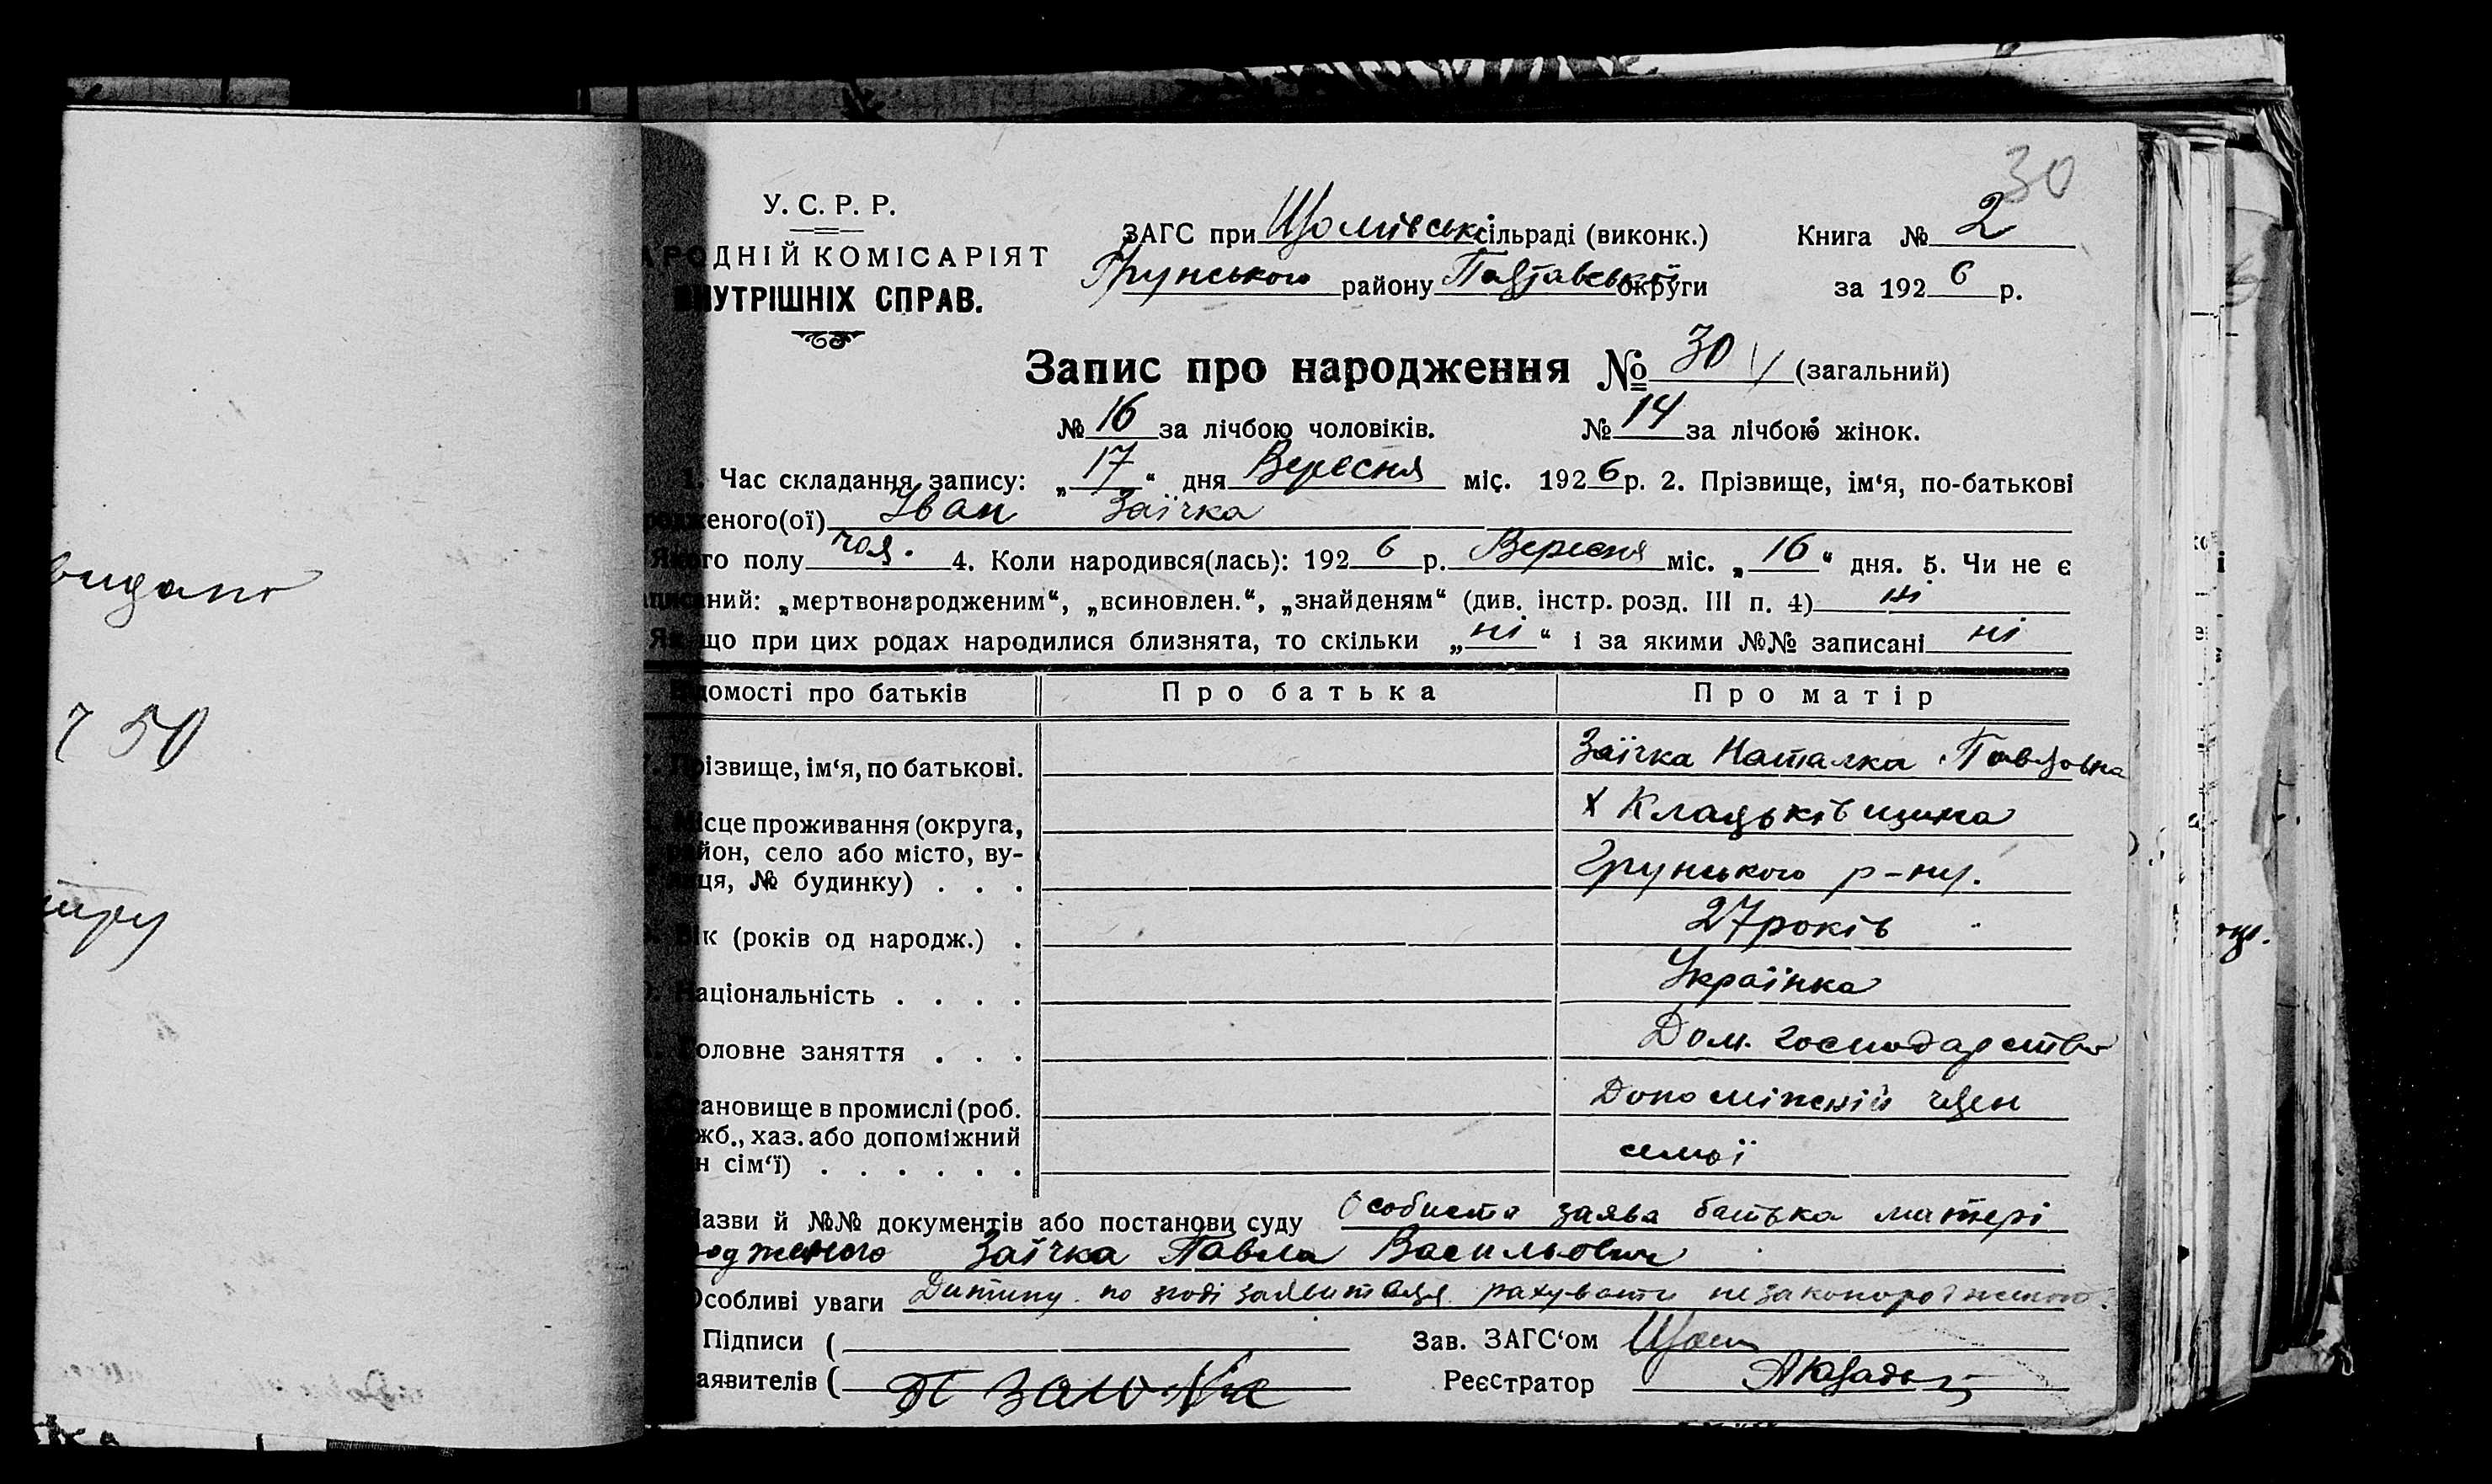 30
У. С. Р. Р.
НАРОДНІЙ КОМІСАРІЯТ
ВНУТРІШНІХ СПРАВ.
ЗАГС при Щомівськ сільраді (виконк.)
Грунського району Полтавської округи
Книга № 2
за 1926 р.
Запис про народження № 30 (загальний)
№ 16 за лічбою чоловіків. № 14 за лічбою жінок.
1. Час складання запису: „17“ дня Вересня міс. 1926 р. 2. Прізвище, ім‘я, по-батькові
родженого(ої) Іван Заїчка
Якого полу чол. 4. Коли народився(лась): 1926 р. Вересня міс. „16“ дня. 5. Чи не є
аписаний: „мертвонародженим“, „всиновлен.“, „знайденям“ (див. інстр. розд. III п. 4) ні
Якщо при цих родах народилися близнята, то скільки „ні“ і за якими №№ записані ні
Відомості про батьків Про батька Про матір
7. Прізвище, ім‘я, по батькові. Заїчка Наталка Павловна
Місце проживання (округа, район, село або місто, ву-
лиця, № будинку) . . .
х Кладьківщина
Грунського р-ну.
Вік (років од народж.) . 27 років
Національність . . . . Українка
Головне заняття . . . Дом. господарство
Становище в промислі (роб.
жб., хаз. або допоміжний
н сім‘ї) . . . . . .
Допоміжній член
семьї
Назви й №№ документів або постанови суду Особиста заява батька матері
родженого Заїчка Павла Васильович
Особливі уваги Дитину по згоді заявителя рахувати незаконорожденою.
Підписи ( Зав. ЗАГС‘ом
аявителів ( Реєстратор
видано
7 50